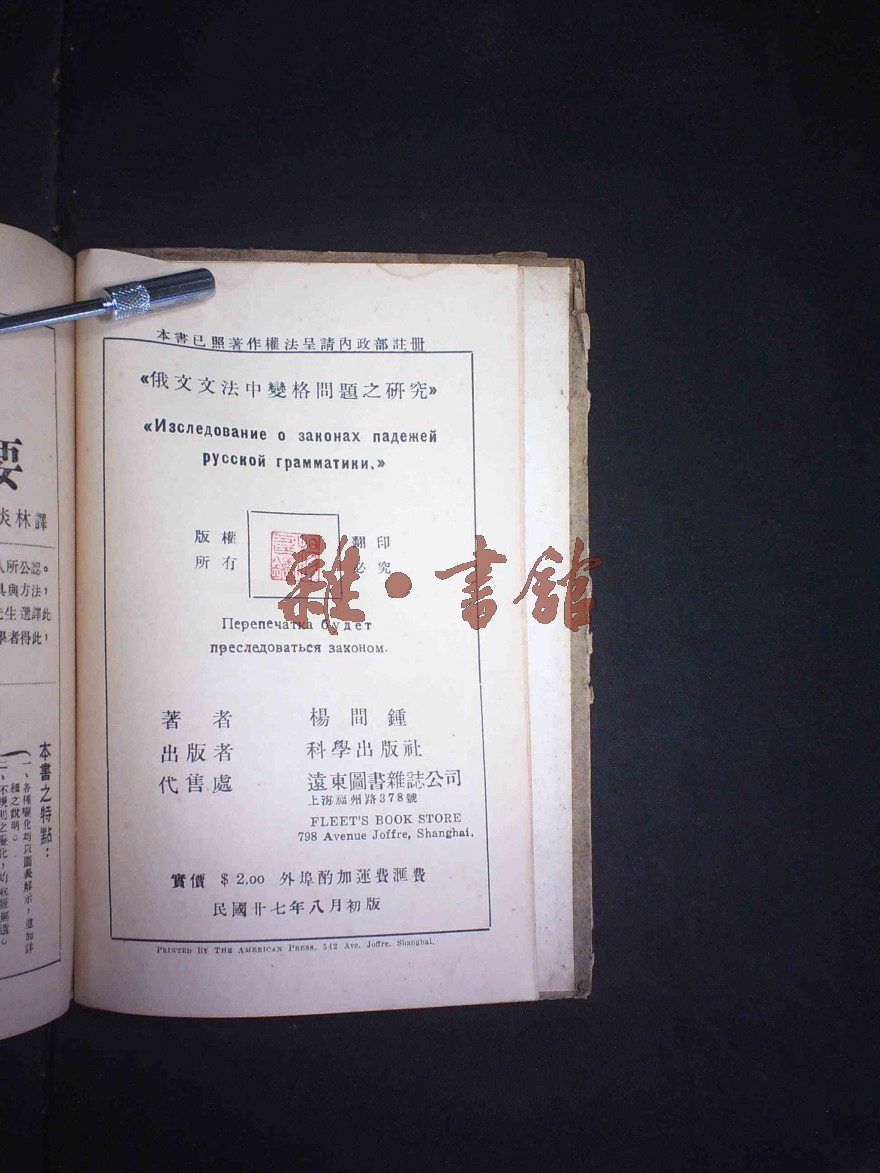 要
炎林譯
人所公認。
具與方法，
先生選譯此
學者得此，
本書之特點：
一、各種變化均以圖表解示，並加詳
細之說明。
本書已照著作權法呈請內政部註冊
«俄文文法中變格問題之研究»
«Изследование о законах падежей
русской грамматики.»
版權 翻印
所有 必究
雜·書館
Перепечатка будет
преследоваться законом.
著者 楊間鍾
出版者 科學出版社
代售處 遠東圖書雜誌公司
上海福州路378號
FLEET'S BOOK STORE
798 Avenue Joffre, Shanghai.
實價 $2.00 外埠酌加運費滙費
民國廿七年八月初版
PRINTED BY THE AMERICAN PRESS, 542 Ave. Joffre, Shanghai.